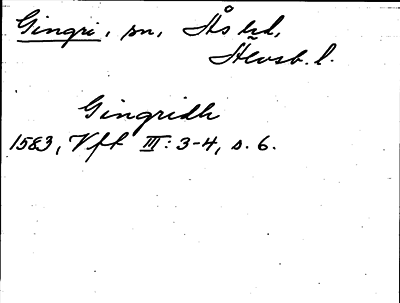 Gingri, sn, Ås hd,
Älvsb. l.
Gingridh
1583, Vft III: 3-4, s. 6.